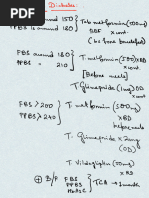 Diabetes:
FBS around 150
PPBS is around 180
Tab metformin (500mg)
BBF x cont
(b4 fore breakfast)
FBS around 180
PPBS " 210
T. metformin (500) BD
x cont
[Before meals]
T. Glimepiride (1mg) OD
x cont
FBS > 200
PPBS > 240
T. metformin
(500mg)
x BD
before meals
T. Glimepride x 2mg
(OD)
T. Vildagliptin (50mg)
x BD
⊕ B/F FBS
PPBS
HbA1C